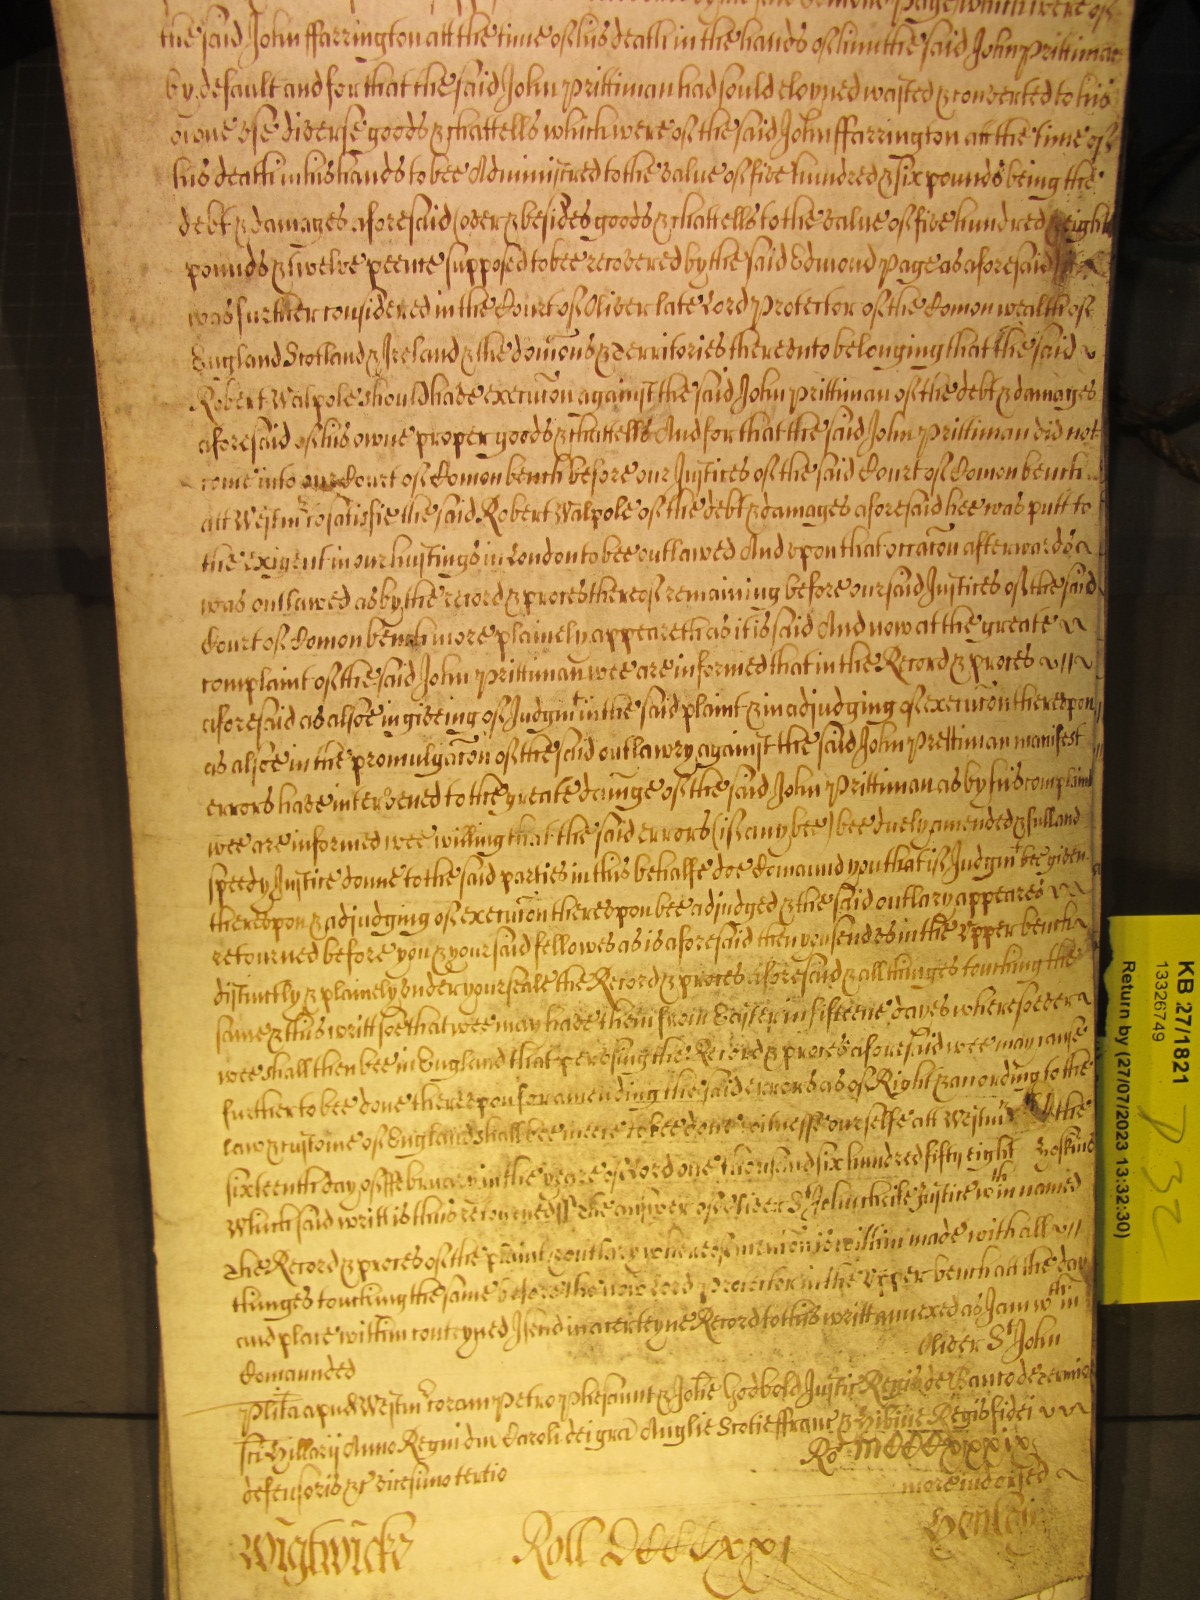 the said John ffarrington att the time of his death in the hands of him the said John Prittiman
by default and for that the said John Prittiman had sould eloyned wasted & converted to his
owne vse diverse goods & chattells which were of the said John ffarrington att the time of
his death in his hands to bee Administred to the value of five hundred & six pounds being the
debt & damages aforesaid (over & besides goods & chattells to the value of five hundred & eight
pounds & twelve peence supposed to bee recovered by the said Edmond Page as aforesaid
was further considered in the Court of Oliver late Lord Protector of the Comon wealth of
England Scotland & Ireland & the domions & Territories therevnto belonging that the said
Robert Walpole should have execucon against the said John Prittiman of the debt & damages
aforesaid of his owne proper goods & chattells And for that the said John Prittiman did not
come into our Court of Comon bench before our Justices of the said Court of Comon bench
att Westm to satisfie the said Robert Walpole of the debt & damages aforesaid hee was putt to
the exigent in our hustings in London to bee outlawed And vpon that occacon afterwards
was outlawed as by the record & proces thereof remaining before our said Justices of the said
Court of Comon bench more plainely appeareth as it is said And now at the greate
complaint of the said John Prittiman wee are informed that in the Record & proces
aforesaid as alsoe in giveing of Judgmt in the said plaint & in adjudging of execucon therevpon
as alsoe in the promulgacon of the said outlawry against the said John Prettiman manifest
errors have intervened to the greate damge of the said John Prittiman as by his complaint
wee are informed wee willing that the said errors (if any bee) bee duely amended & full and
speedy Justice donne to the said parties in this behalfe doe Comaund you that if Judgmt bee given
therevpon & adjudging of execucon therevpon bee adjudged & the said outlary appeares
retourned before you & your said fellowes as is aforesaid then you send vs in the Vpper bench
distinctly & plainely vnder your seale the Record & proces aforesaid & all thinges touching the
same & this writt soe that wee may have them from Easter in fifteene dayes wheresoever
wee shall then bee in England that perusing the Record & proces aforesaid wee may cause
further to bee done therevpon for amending the said errors as of Right & according to the
law & custome of England shall bee meete to bee done witnesse ourselfe att Westmr the
sixteenth day of ffebruary in the yeare of Lord one thousand six hundred fifty eight
Which said writt is thus retourned ss The answer of Oliver St John cheife Justice wthin named
The Record & proces of the plaint & outlary whereof mencon is within made with all
thinges touching the same before the now Lord Protector in the Vpper bench att the day
and place within conteyned I send in a certeyne Record to this writt annexed as I am wthin
Comaunded Oliver St John
Plita apud Westm coram Petro Phesaunt & Johe Godbold Justic Regis de Banco de termino
sci Hillarij Anno Regni dni Caroli dei gra Anglie Scotie ffranc & Hibnie Regis fidei
defensoris &c vicesimo tertio Ro
more indorsed
Wightwicke Roll DCCCCxxi
KB 27/1821
13326749
Return by (27/07/2023 13:32:30)
P32